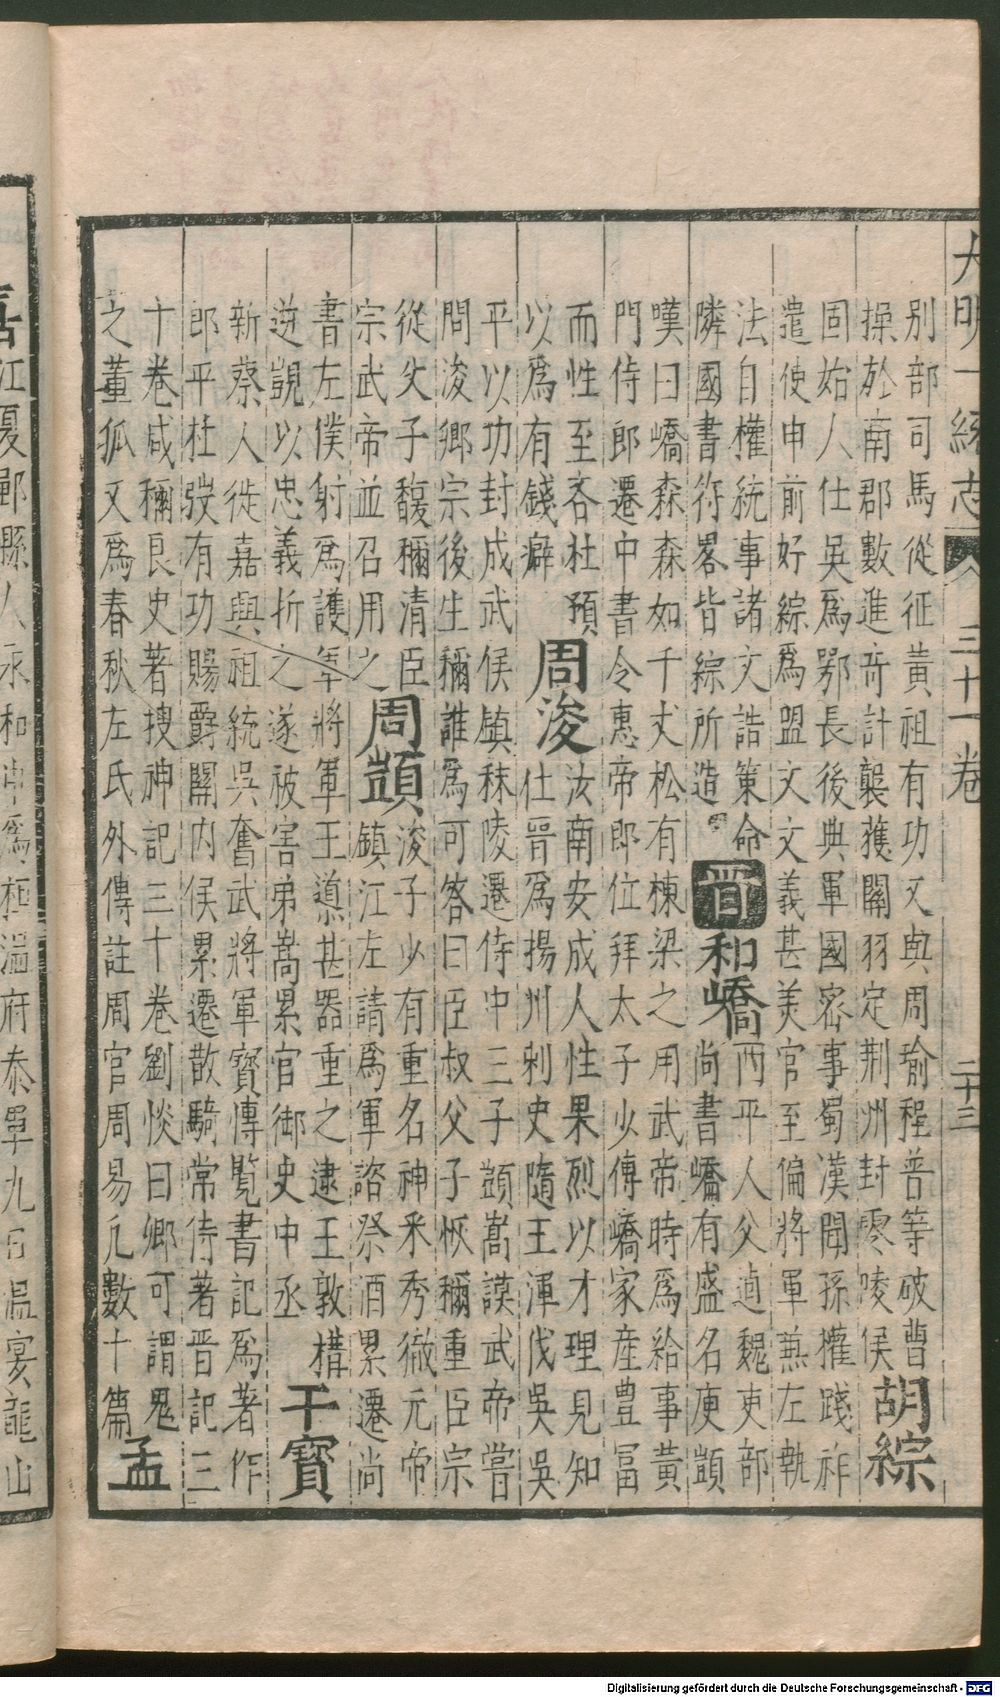 大明一統志 三十一卷 二十三
別部司馬從征黃祖有功又與周瑜程普等破曹
操於南郡數進奇計襲獲關羽定荆州封零陵侯
胡綜
固始人仕吳爲鄂長後典軍國密事蜀漢聞孫權踐祚
遣使申前好綜爲盟文文義甚美官至偏將軍兼左執
法自權統事諸文誥策命
隣國書符畧皆綜所造
晉
和嶠
西平人父逌魏吏部
尚書嶠有盛名庾顗
嘆曰嶠森森如千丈松有棟梁之用武帝時爲給事黃
門侍郎遷中書令惠帝郎位拜太子少傅嶠家産豊冨
而性至吝杜預
以爲有錢癖
周浚
汝南安成人性果烈以才理見知
仕晉爲揚州刺史隨王渾伐吳吳
平以功封成武侯鎮秣陵遷侍中三子顗嵩謨武帝嘗
問浚鄉宗後生稱誰爲可答曰臣叔父子恢稱重臣宗
從父子馥稱清臣
宗武帝並召用之
周顗
浚子少有重名神釆秀徹元帝
鎮江左請爲軍諮祭酒累遷尚
書左僕射爲護軍將軍王導甚器重之逮王敦構
逆覬以忠義折之遂被害弟嵩累官御史中丞
干寶
新蔡人徙嘉興祖統吳奮武將軍寶傳覧書記爲著作
郎平杜弢有功賜爵關内侯累遷散騎常侍著晋記三
十卷咸稱良史著搜神記三十卷劉惔曰鄉可謂鬼
之董狐又爲春秋左氏外傳註周官周易凢數十篇
孟
嘉
江夏鄳縣人永和中爲桓温府叅軍九日温宴龍山
Digitalisierung gefördert durch die Deutsche Forschungsgemeinschaft - DFG